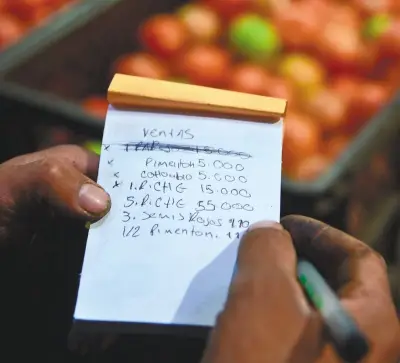 ventas
x Pimenton 5.000
x 5.000
x 1. P. CHG 15.000
5. P. CHG 55.000
3. semis Rojos
1/2 Pimenton.